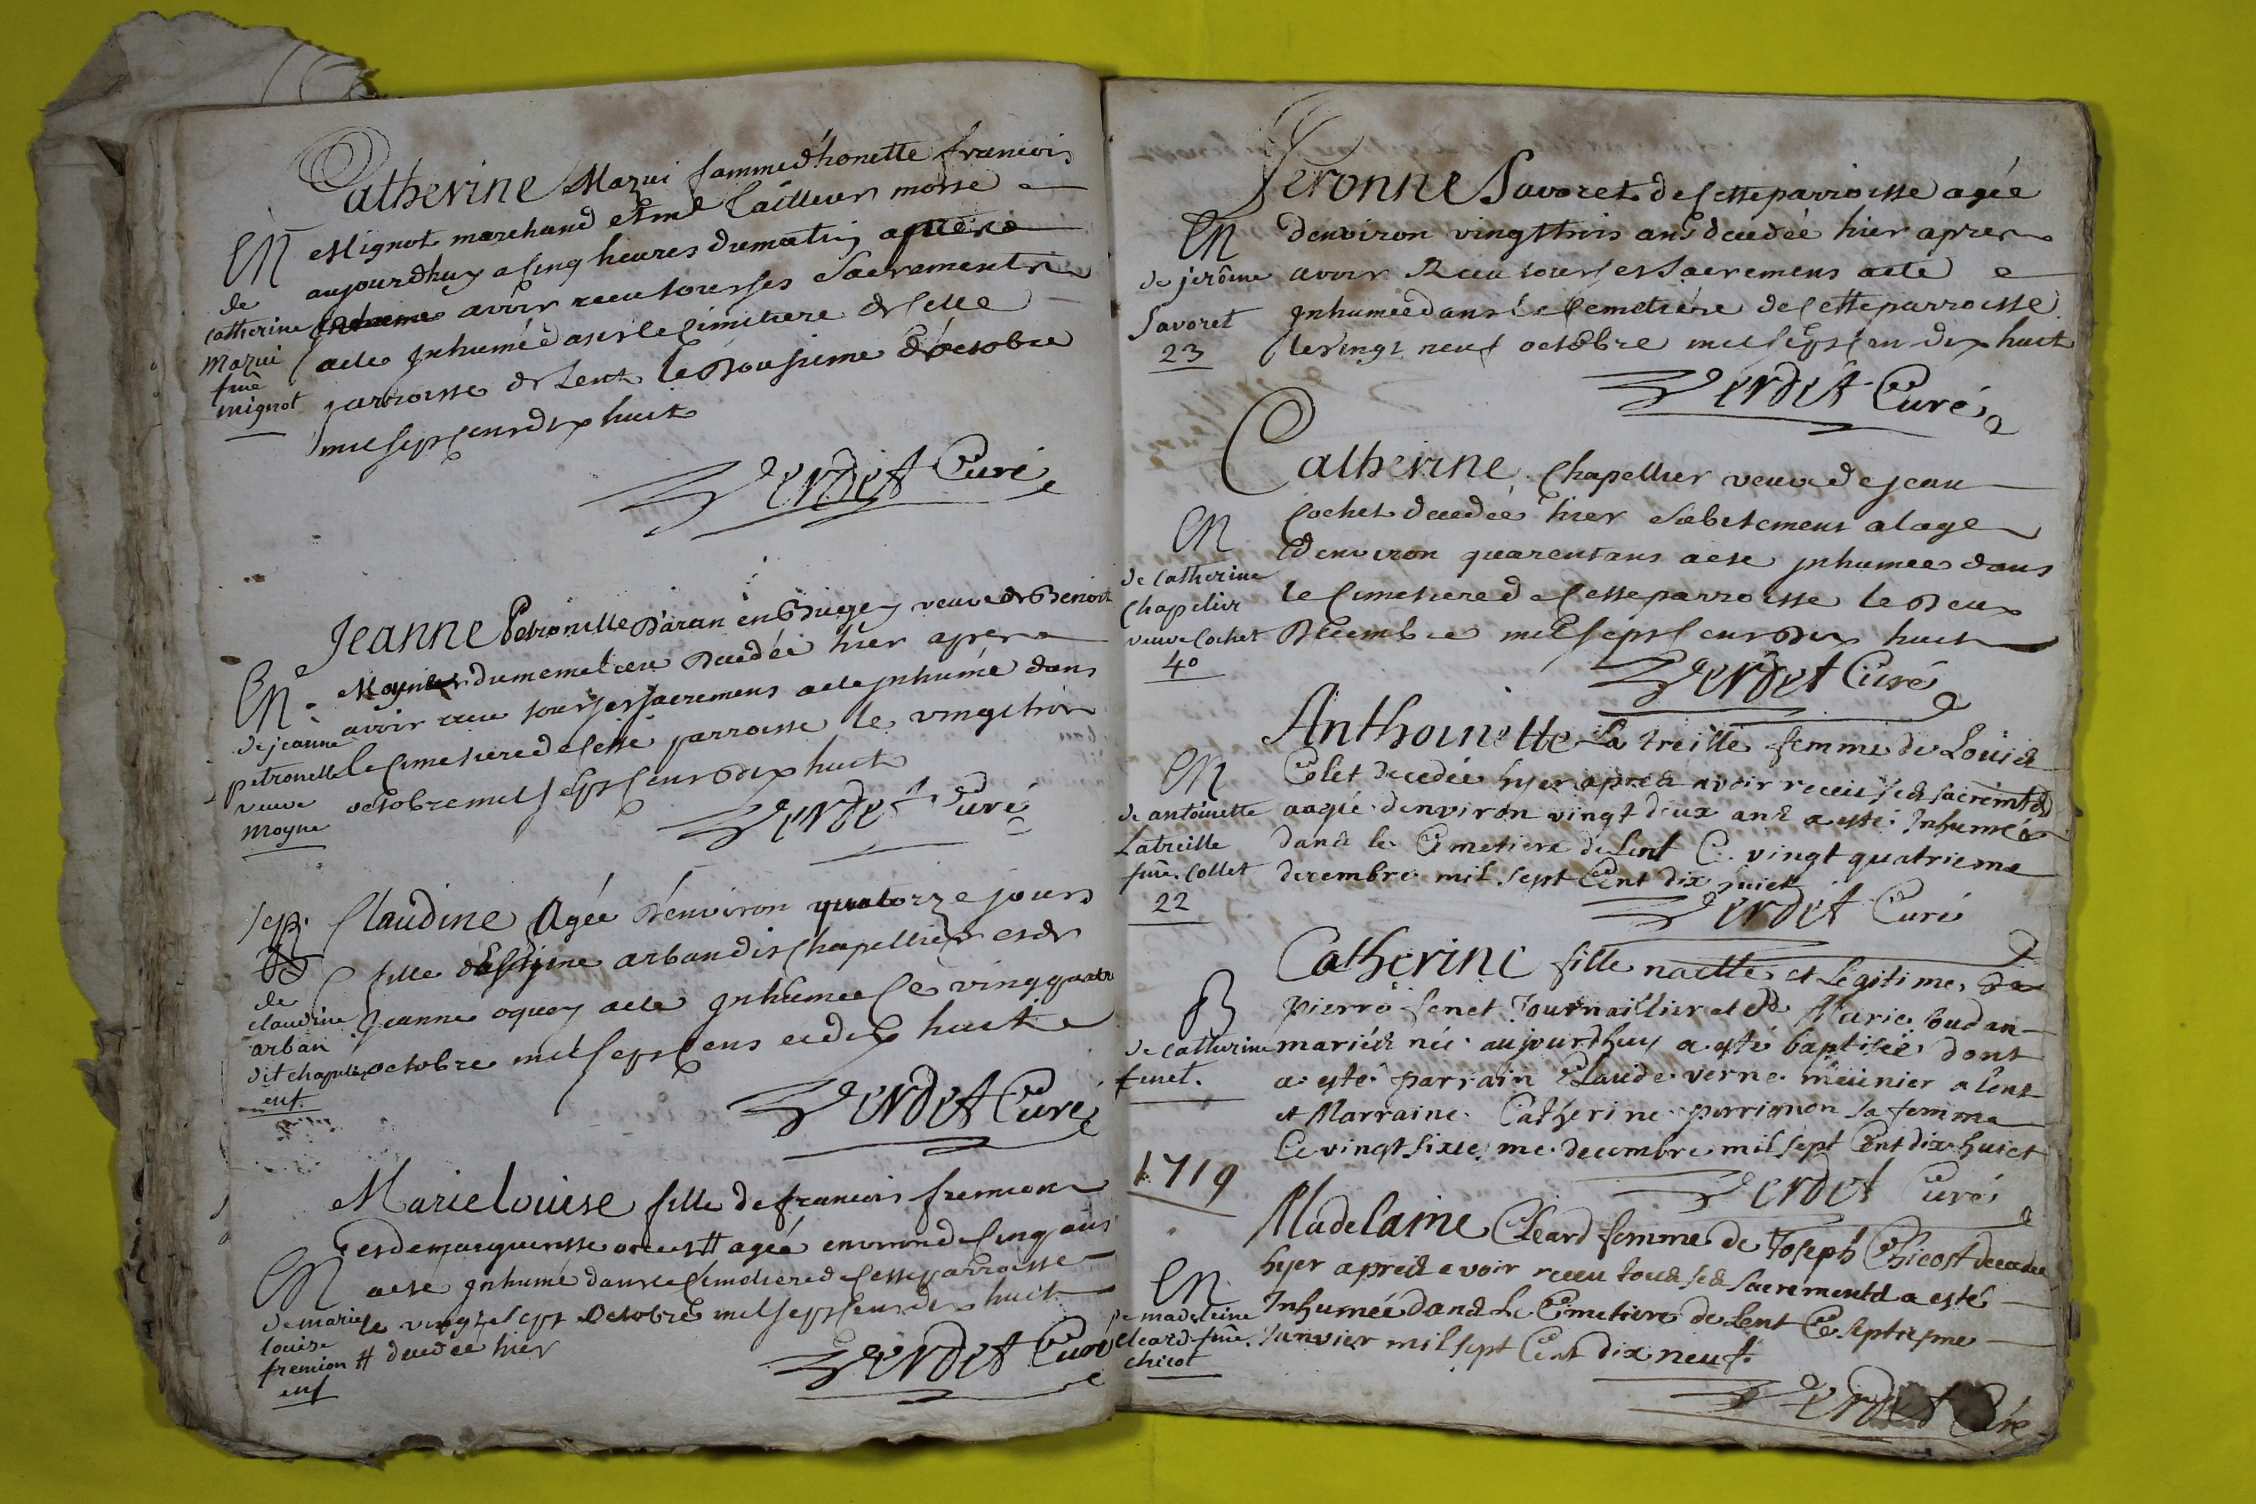 Catherine Mazui famme d'honette francois
Mignot marchand et md Tailleur morte
aujourdhuy a cinq heures du matin
avoir receu tous ses Sacrements
a ete inhumé dans le Cimitiere de cette
parroisse de Lent le Dousieme d'octobre
mil sept cens dix huit
Verdet Curé
En
de
catherine
Mazui
fme
mignot
Jeanne Petronille Daran en Bugey veuve de Benoit
du meme lieu Decedée hier apres
avoir receu tous ses sacremens a ete inhumé dans
le Cimetiere de cette parroisse le vingt trois
octobre mil sept cens Dix huit
Verdet Curé
En
de jeanne
petronelle
veuve
moyne
Claudine Agée D'environ quatorze jours
fille arban dit Chapellier et de
Jeanne oquoy a ete inhumee le ving quatr
octobre mil sept cens et dix huit
Verdet Curé
Sep.
de
claudine
arban
dit chapelier
enf.
Marie louise fille de francois fremion
et de agée environ de Cinq ans
a ete inhumé dans le Cimetiere de Cette parroisse
le vingt sept octobre mil sept cens dix huit
# decedée hier
Verdet Curé
En
de marie
louise
fremion
enf
Jeronne Savoret de Cette parroisse agée
denviron vingt trois ans decedée hier apres
avoir Receu tous ses Sacremens a ete
inhumée dans le Cemetiere de Cette parroisse
le vingt neuf octobre mil sept cens dix huit
Verdet Curé
En
de jerôme
Savoret
23
Catherine Chapellier veuve de jean
Cochet decedée hier subitement a lage
denviron quarent ans a ete inhumee dans
le Cimetiere de Cette parroisse le Deux
Decembre mil sept cens Dix huit
Verdet Curé
En
de catherine
Chapelier
veuve Cochet
40
Anthoinette La treille femme de Louis
Colet decedée hyer apres avoir receu ses sacremts
aagée denviron vingt deux ans a esté Inhumée
dans le Cimetiere de Lent Ce vingt quatrieme
decembre mil sept Cent dix huict
Verdet Curé
En
de antoinette
Latreille
fme. Collet
22
Catherine fille naelle et Legitime de
pierre fenet Journaillier et de Marie boudan
mariés née aujourdhuy a esté baptisée dont
a esté parrain Claude verne meunier a lent
et Marraine Catherine perrimon sa femme
Ce vingt sixieme decembre mil sept Cent dix huict
Verdet Curé
B
de catherine
fenet.
1719
Madelaine Cleard femme de Joseph Chicost decedee
hyer apres avoir receu tous ses sacrements a esté
Inhumée dans le Cimetiere de Lent Ce septieme
Janvier mil sept Cent dix neuf.
Verdet Curé
En
de madeleine
cleard fme.
chicot